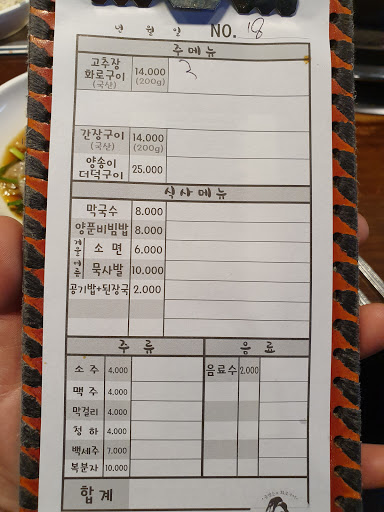 년 월 일 NO. 18
주 메 뉴
고추장 화로구이 (국산) 14.000 (200g) 2
간장구이 (국산) 14.000 (200g)
양송이 더덕구이 25.000
식 사 메 뉴
막국수 8.000
양푼비빔밥 8.000
겨울 소 면 6.000
여름 묵사발 10.000
공기밥+된장국 2.000
주 류 음 료
소 주 4.000 음료수 2.000
맥 주 4.000
막걸리 4.000
청 하 4.000
백세주 7.000
복분자 10.000
합 계